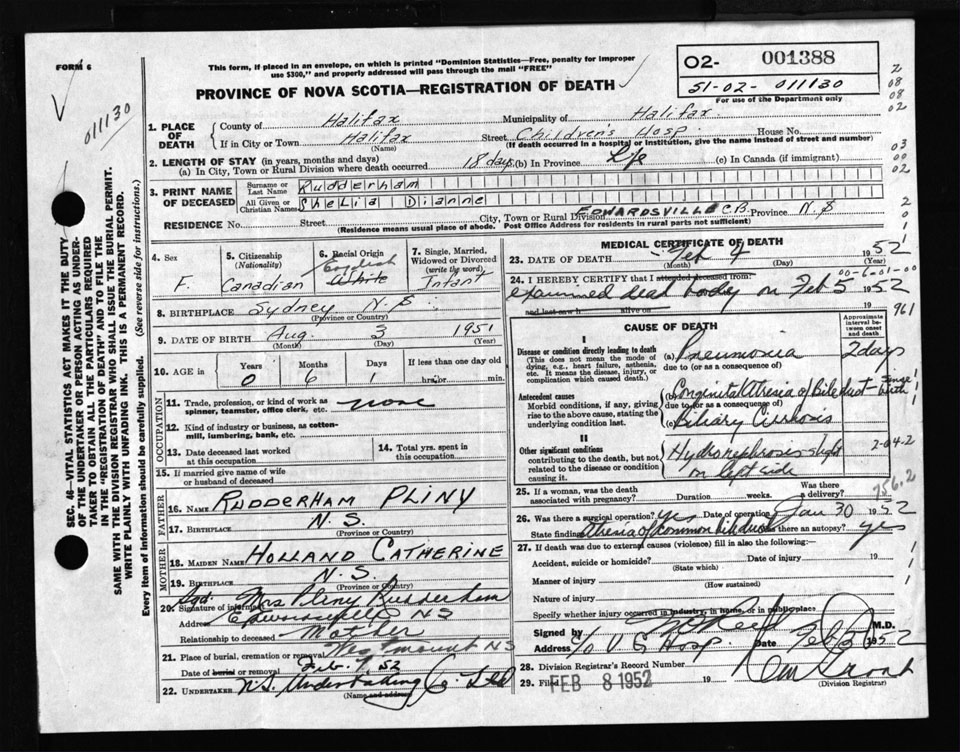 FORM 6
This form, if placed in an envelope, on which is printed "Dominion Statistics—Free, penalty for improper
use $300," and properly addressed will pass through the mail "FREE"
PROVINCE OF NOVA SCOTIA—REGISTRATION OF DEATH
02- 001388
51-02- 011130
For use of the Department only
011130
1. PLACE OF DEATH
County of Halifax Municipality of Halifax
If in City or Town Halifax Street Children's Hosp. House No.
(Name) (If death occurred in a hospital or institution, give the name instead of street and number)
2. LENGTH OF STAY (in years, months and days)
(a) In City, Town or Rural Division where death occurred 18 days (b) in Province Life (c) In Canada (if immigrant)
3. PRINT NAME OF DECEASED
Surname or Last Name Rudderham
All Given or Christian Names Shelia Dianne
RESIDENCE No. Street City, Town or Rural Division EDWARDSVILLE C.B. Province N.S
(Residence means usual place of abode. Post Office Address for residents in rural parts not sufficient)
4. Sex F.
5. Citizenship (Nationality) Canadian
6. Racial Origin English White
7. Single, Married, Widowed or Divorced (write the word) Infant
8. BIRTHPLACE Sydney N.S.
(Province or Country)
9. DATE OF BIRTH Aug. 3 1951
(Month) (Day) (Year)
10. AGE in Years 0 Months 6 Days 1 If less than one day old hrs. or min.
OCCUPATION
11. Trade, profession, or kind of work as spinner, teamster, office clerk, etc. none
12. Kind of industry or business, as cotton-mill, lumbering, bank, etc.
13. Date deceased last worked at this occupation
14. Total yrs. spent in this occupation
15. If married give name of wife or husband of deceased
FATHER
16. NAME RUDDERHAM PLINY
17. BIRTHPLACE N.S.
(Province or Country)
MOTHER
18. MAIDEN NAME HOLLAND CATHERINE
19. BIRTHPLACE N.S.
(Province or Country)
20. Signature of informant Sgd. Mrs Pliny Rudderham
Address Edwardsville NS
Relationship to deceased Mother
21. Place of burial, cremation or removal Westmount NS
Date of burial or removal Feb. 7, 52
22. UNDERTAKER N.S. Undertaking Co. Ltd
(Name and address)
MEDICAL CERTIFICATE OF DEATH
23. DATE OF DEATH Feb 4 1952
(Month) (Day) (Year)
24. I HEREBY CERTIFY that I attended deceased from:
00-6-01-00
examined dead body on Feb 5 1952
and last saw h alive on 19
961
CAUSE OF DEATH
Approximate interval between onset and death
I
Disease or condition directly leading to death
(This does not mean the mode of dying, e.g., heart failure, asthenia, etc. It means the disease, injury, or complication which caused death.)
(a) Pneumonia 2 days
due to (or as a consequence of)
Antecedent causes
Morbid conditions, if any, giving rise to the above cause, stating the underlying condition last.
(b) Congenital Atresia of Bile duct - Since birth
due to (or as a consequence of)
(c) Biliary Cirrhosis
II
Other significant conditions
contributing to the death, but not related to the disease or condition causing it.
Hydronephrosis slight on left side
756.2
25. If a woman, was the death associated with pregnancy? Duration weeks. Was there a delivery?
26. Was there a surgical operation? yes Date of operation Jan 30 1952
State findings Atresia of common bile duct Was there an autopsy? yes
27. If death was due to external causes (violence) fill in also the following:
Accident, suicide or homicide? Date of injury 19
(State which)
Manner of injury
(How sustained)
Nature of injury
Specify whether injury occurred in industry, in home, or in public place
Signed by M.D.
Address c/o V. G Hosp Date Feb 1952
28. Division Registrar's Record Number
29. Filed FEB 8 1952 19
(Division Registrar)
SEC. 46—VITAL STATISTICS ACT MAKES IT THE DUTY
OF THE UNDERTAKER OR PERSON ACTING AS UNDERTAKER TO OBTAIN ALL THE PARTICULARS REQUIRED
IN THE "REGISTRATION OF DEATH" AND TO FILE THE
SAME WITH THE DIVISION REGISTRAR WHO SHALL ISSUE THE BURIAL PERMIT.
WRITE PLAINLY WITH UNFADING INK. THIS IS A PERMANENT RECORD.
Every item of information should be carefully supplied. (See reverse side for instructions.)